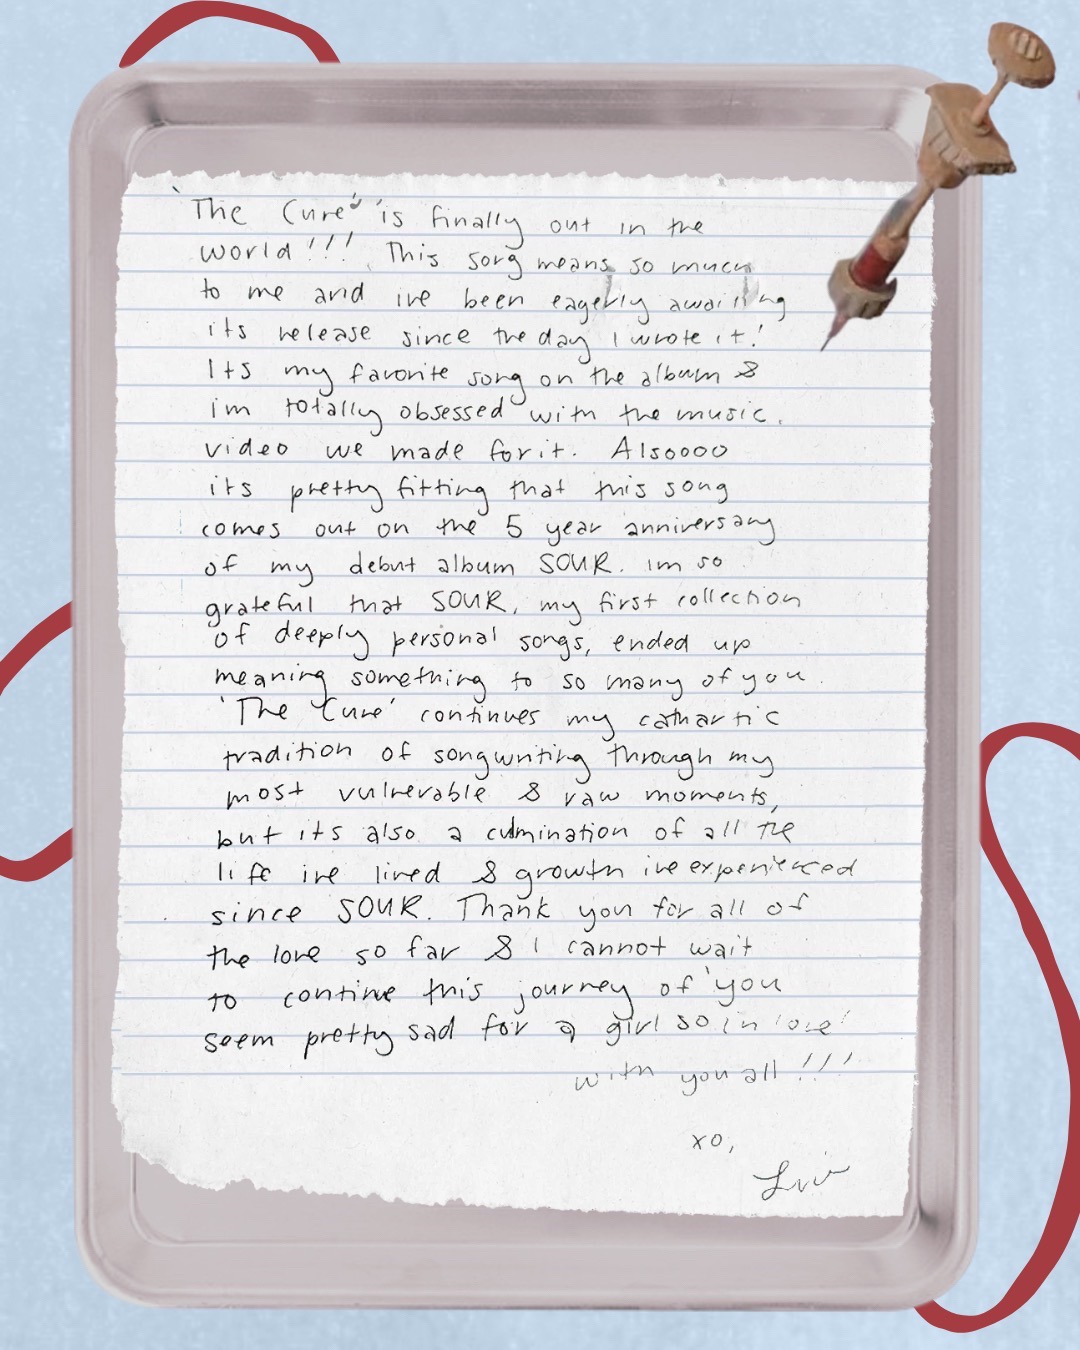 'The Cure' is finally out in the
world!!! This song means so much
to me and ive been eagerly awaiting
its release since the day I wrote it!
Its my favorite song on the album &
im totally obsessed with the music
video we made for it. Alsoooo
its pretty fitting that this song
comes out on the 5 year anniversary
of my debut album SOUR. im so
grateful that SOUR, my first collection
of deeply personal songs, ended up
meaning something to so many of you.
'The Cure' continues my cathartic
tradition of songwriting through my
most vulnerable & raw moments,
but its also a culmination of all the
life ive lived & growth ive experienced
since SOUR. Thank you for all of
the love so far & I cannot wait
to continue this journey of 'you
seem pretty sad for a girl so in love'
with you all!!!
xo,
Liv